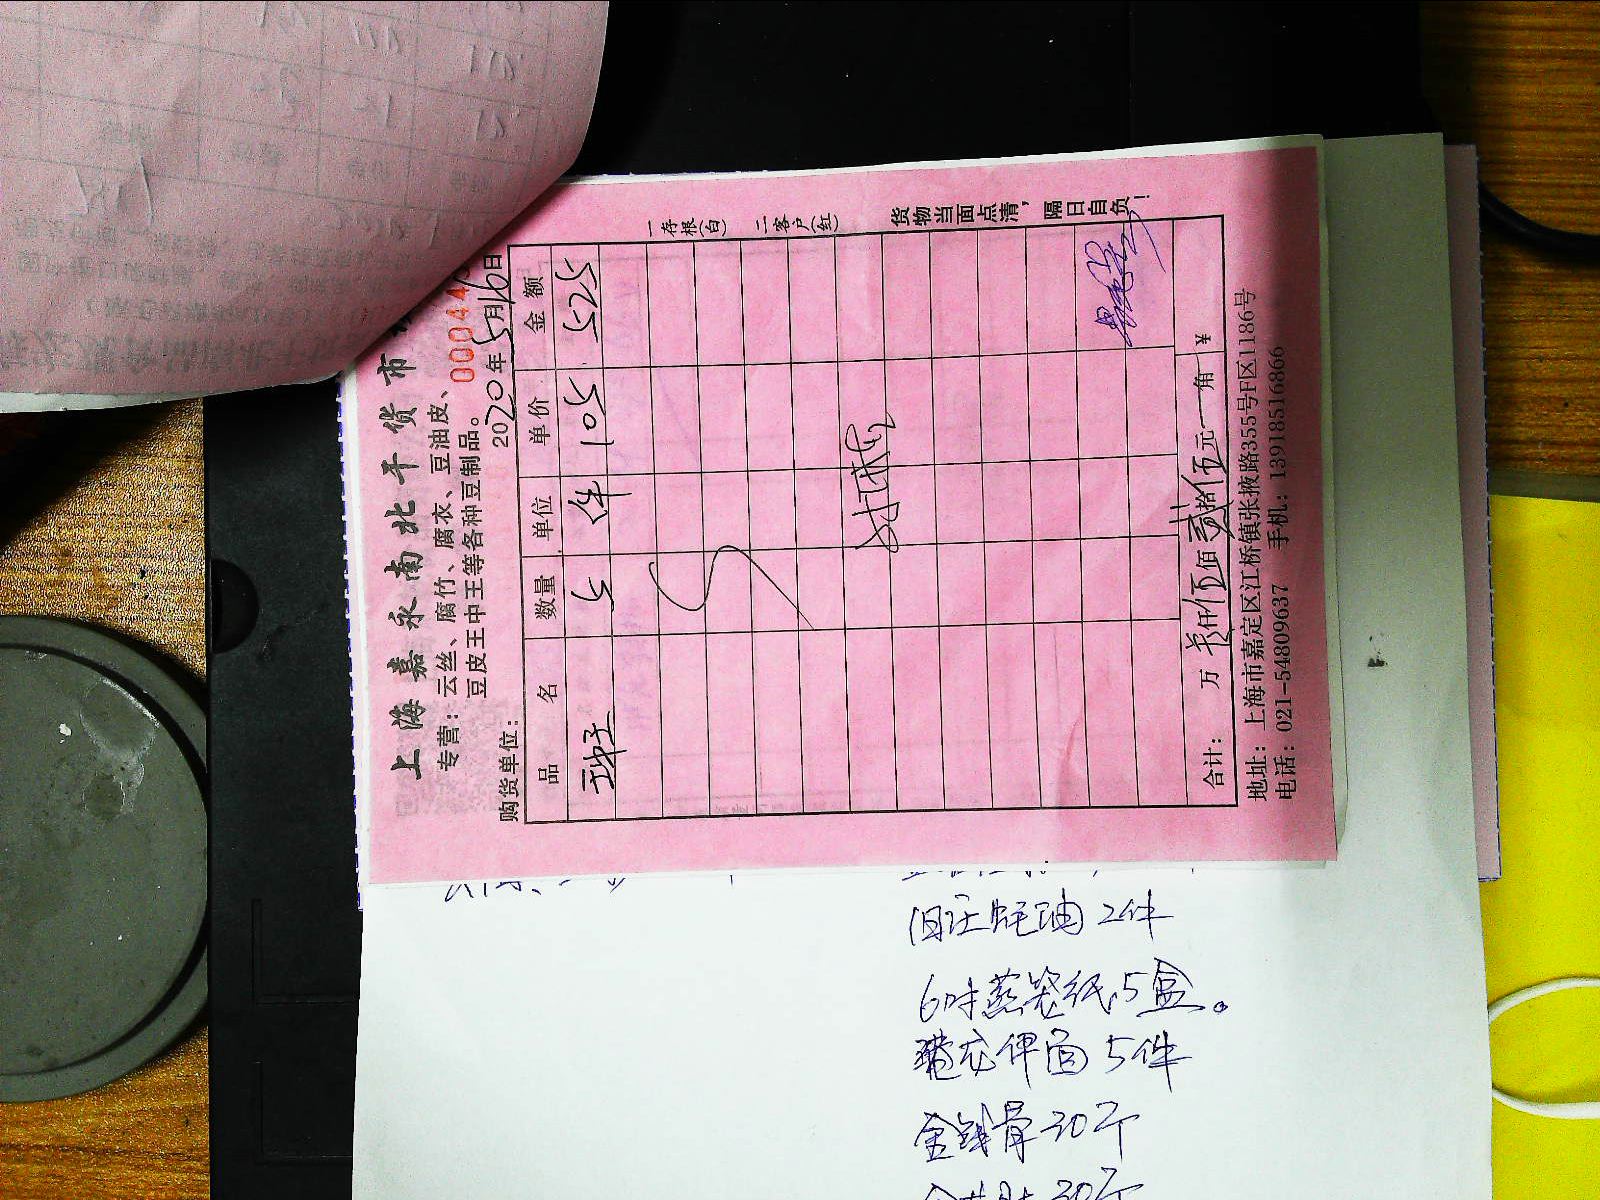 上海嘉永南北干货市
专营：云丝、腐竹、腐衣、豆油皮、
豆皮王中王等各种豆制品。
00044
购货单位： 2020年5月16日
品名 数量 单位 单价 金额
5 件 105 525
合计： 万 仟伍佰贰拾伍元 角 ¥
地址：上海市嘉定区江桥镇张掖路355号F区1186号
电话：021-54809637 手机：13918516866
一存根(白) 二客户(红) 货物当面点清，隔日自负！
旧庄蚝油 2件
6吋蒸笼纸 5盒。
面 5件
金钱骨 30个
30个